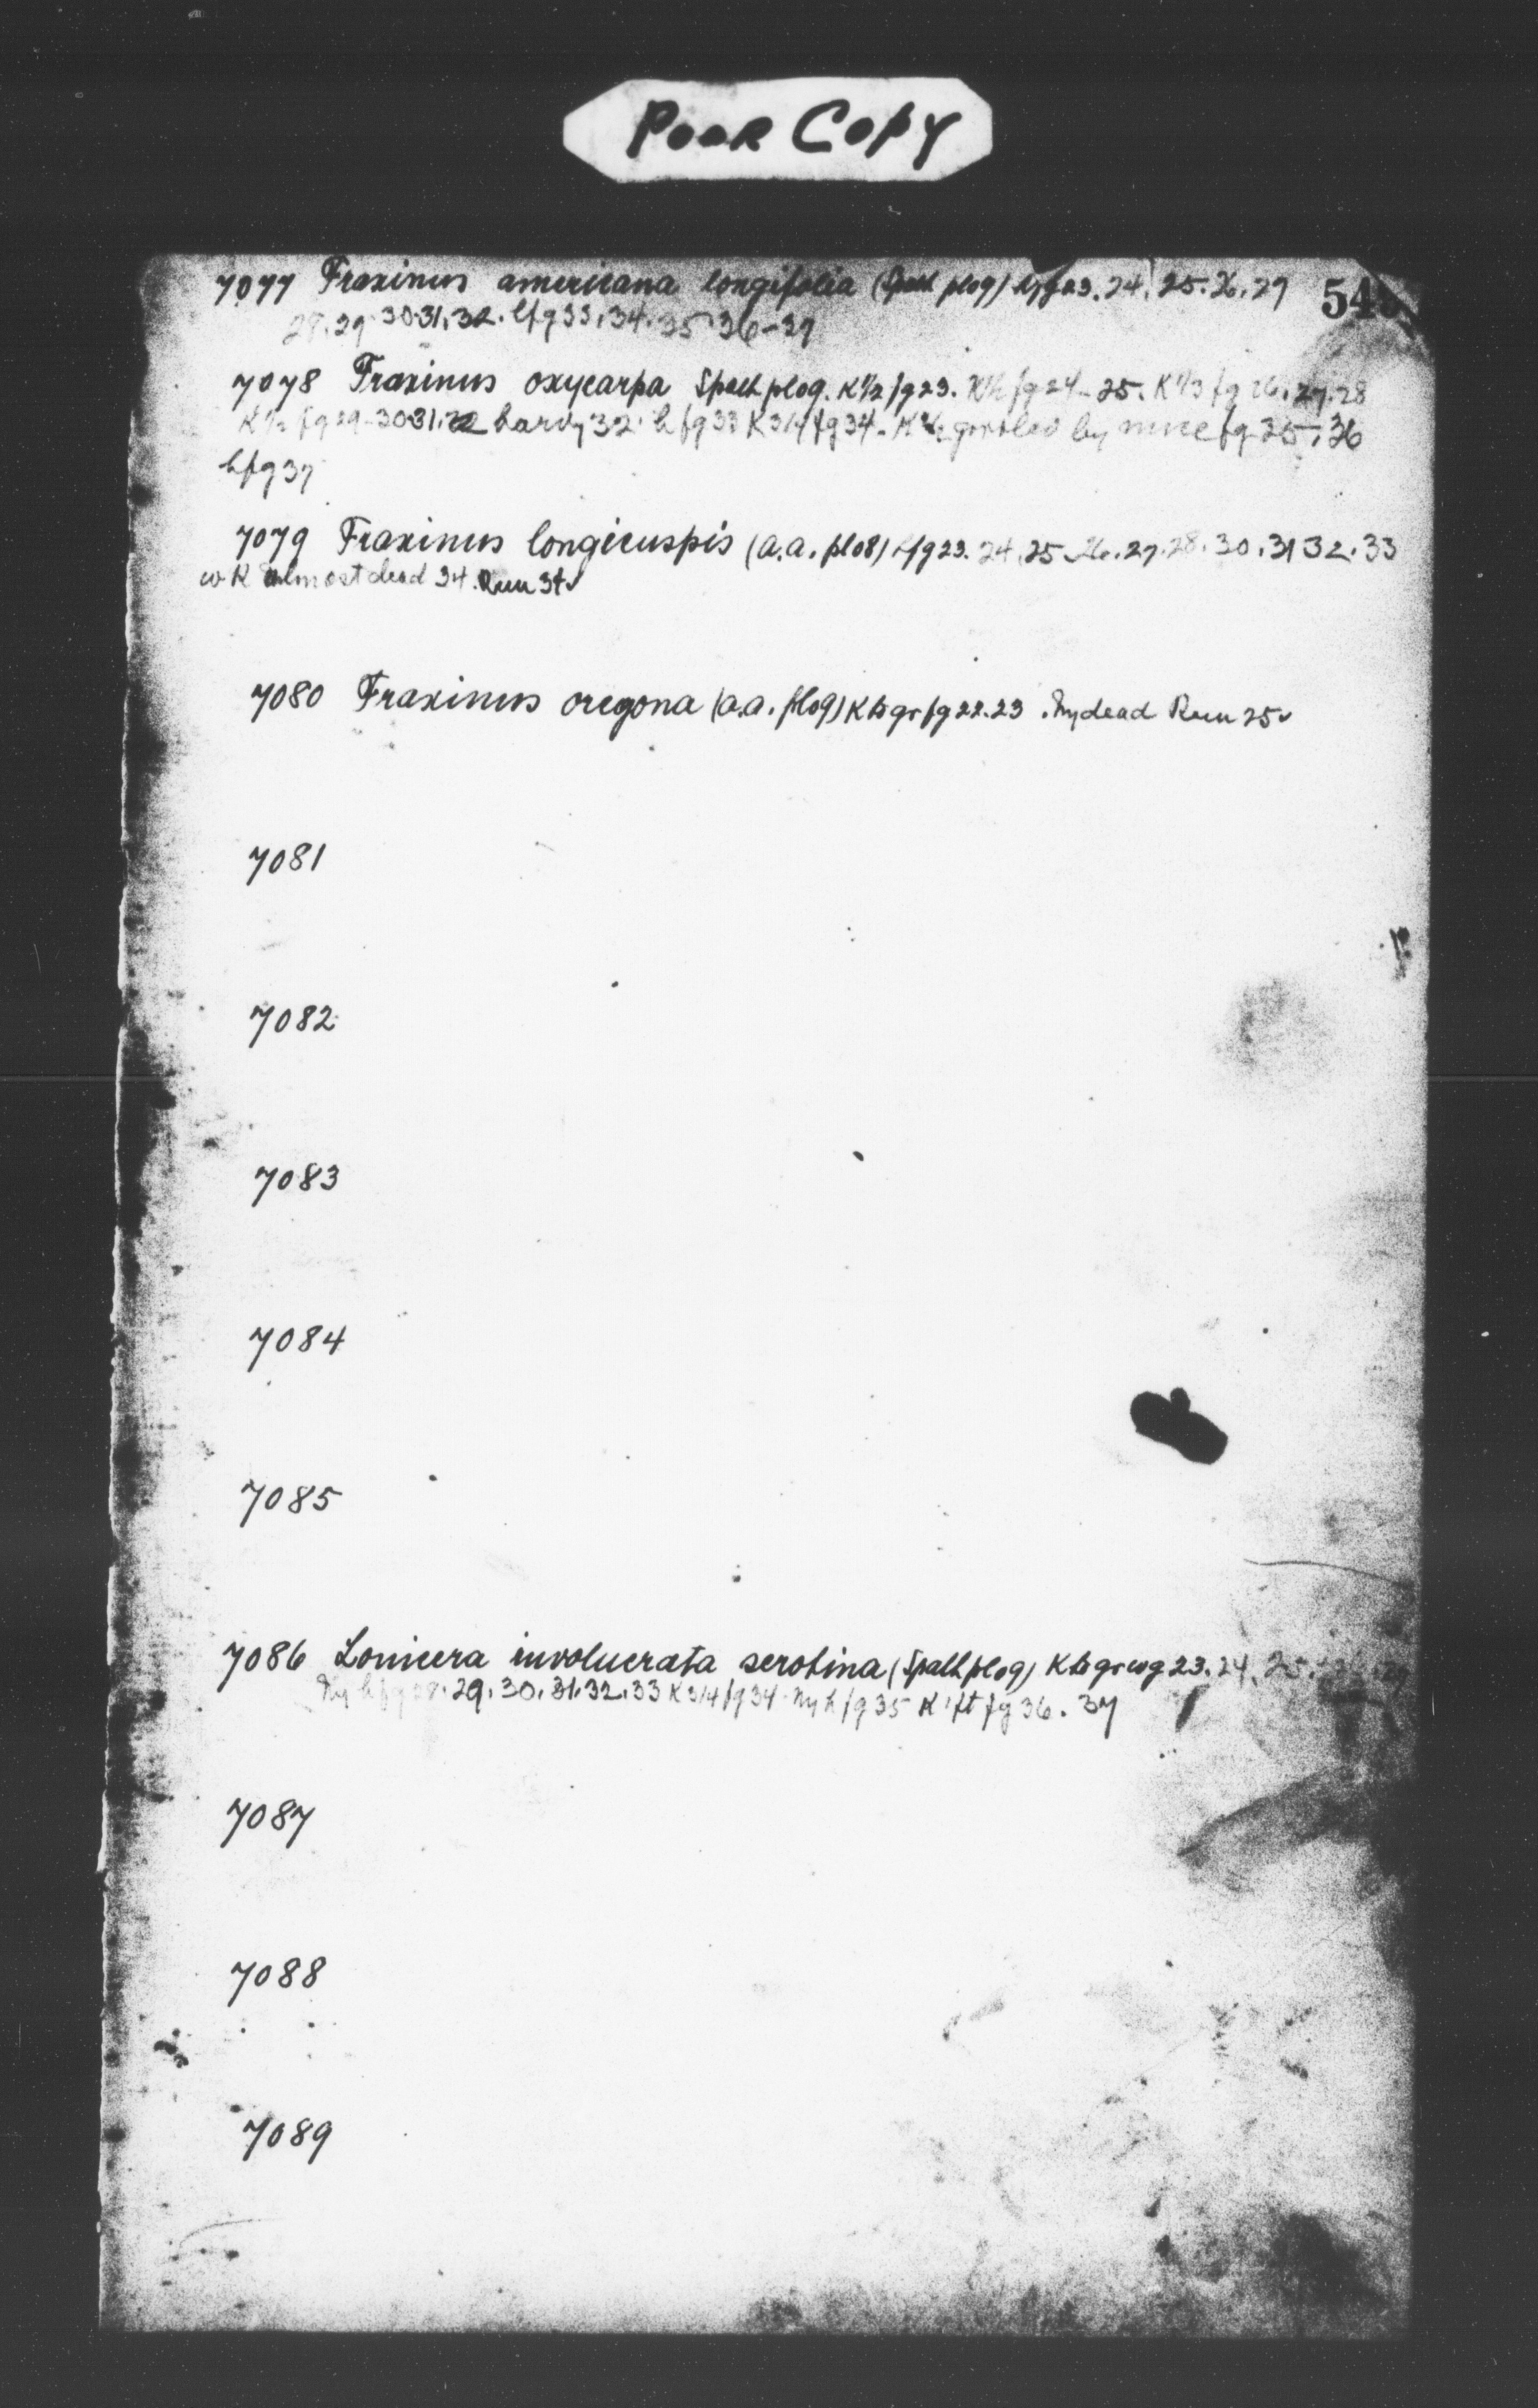 Poor Copy
7077 Fraxinus americana longifolia (Spath pl09) hfg 23. 24. 25. 26. 27 54
28. 29. 30. 31. 32. hfg 33. 34. 35. 36-37
7078 Fraxinus oxycarpa Spath pl09. K 1/2 fg 23. K 1/2 fg 24-25. K 1/3 fg 26. 27. 28
K 1/2 fg 29-30. 31. hardy 32. hfg 33 K 3/4 fg 34. girdled by mice fg 35. 36
hfg 37
7079 Fraxinus longicuspis (a.a. pl08) hfg 23. 24. 25. 26. 27. 28. 30. 31 32. 33
w K almost dead 34. Rem 34 ✓
7080 Fraxinus oregona (a.a. pl09) K to gr fg 22. 23. Ny dead Rem 25 ✓
7081
7082
7083
7084
7085
7086 Lonicera involucrata serotina (Spath pl09) K to gr wg 23. 24. 25.
Ny hfg 28. 29. 30. 31. 32. 33 K 3/4 fg 34. Ny h fg 35 K 1 ft fg 36. 37
7087
7088
7089